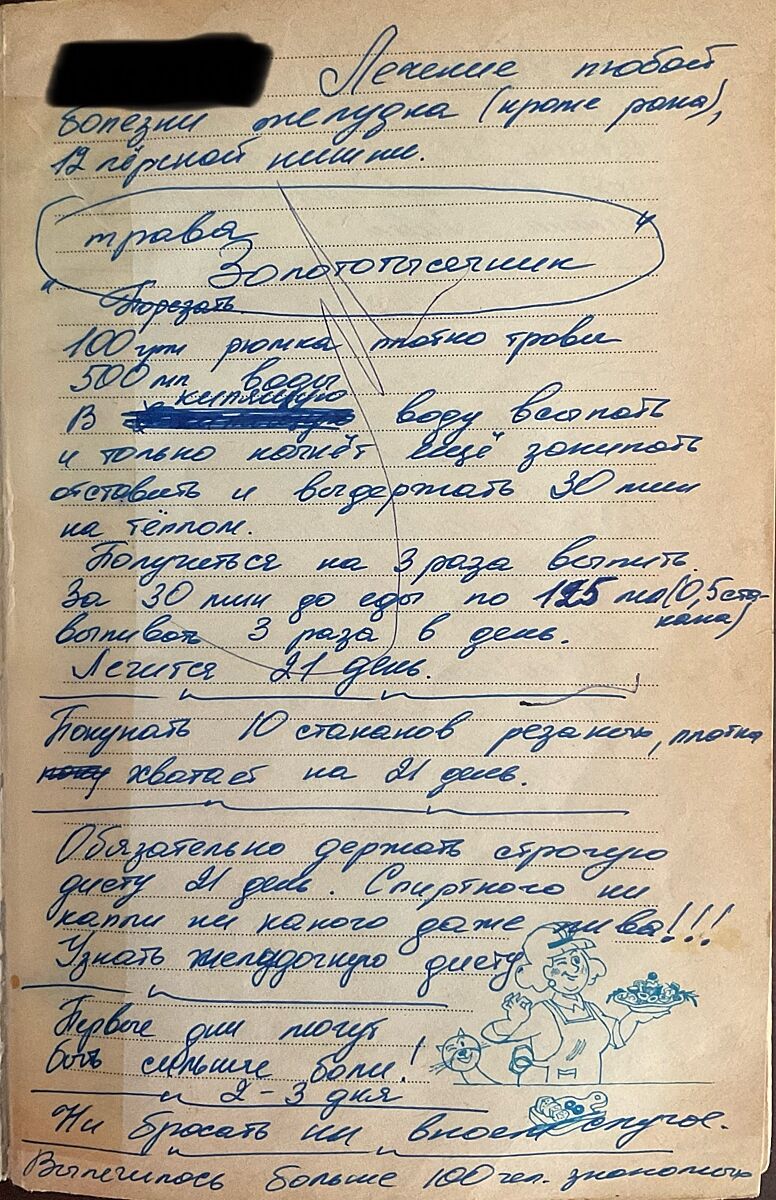 Лечение любой
болезни желудка (кроме рака),
12 пёрсной кишки.
трава
Золототысечник"
" Порезать.
100 грм рюмка плотно травы
500 мл воды
кипящую
В воду всыпать
и только начнёт ещё закипать
отставить и выдержать 30 мин
на тёплом.
Получиться на 3 раза выпить.
За 30 мин до еды по 125 мл (0,5 ста-
кана)
выпивать 3 раза в день.
Лечится 21 день.
Покупать 10 стаканов резаную, плотно
хватает на 21 день.
Обязательно держать строгую
диету 21 день. Спиртного ни
капли ни какого даже пива!!!
Узнать желудочную диету
Первые дни могут
быть сильные боли!
2-3 дня
Ни бросать ни вкоем случае.
Вылечилось больше 100 чел. знакомых